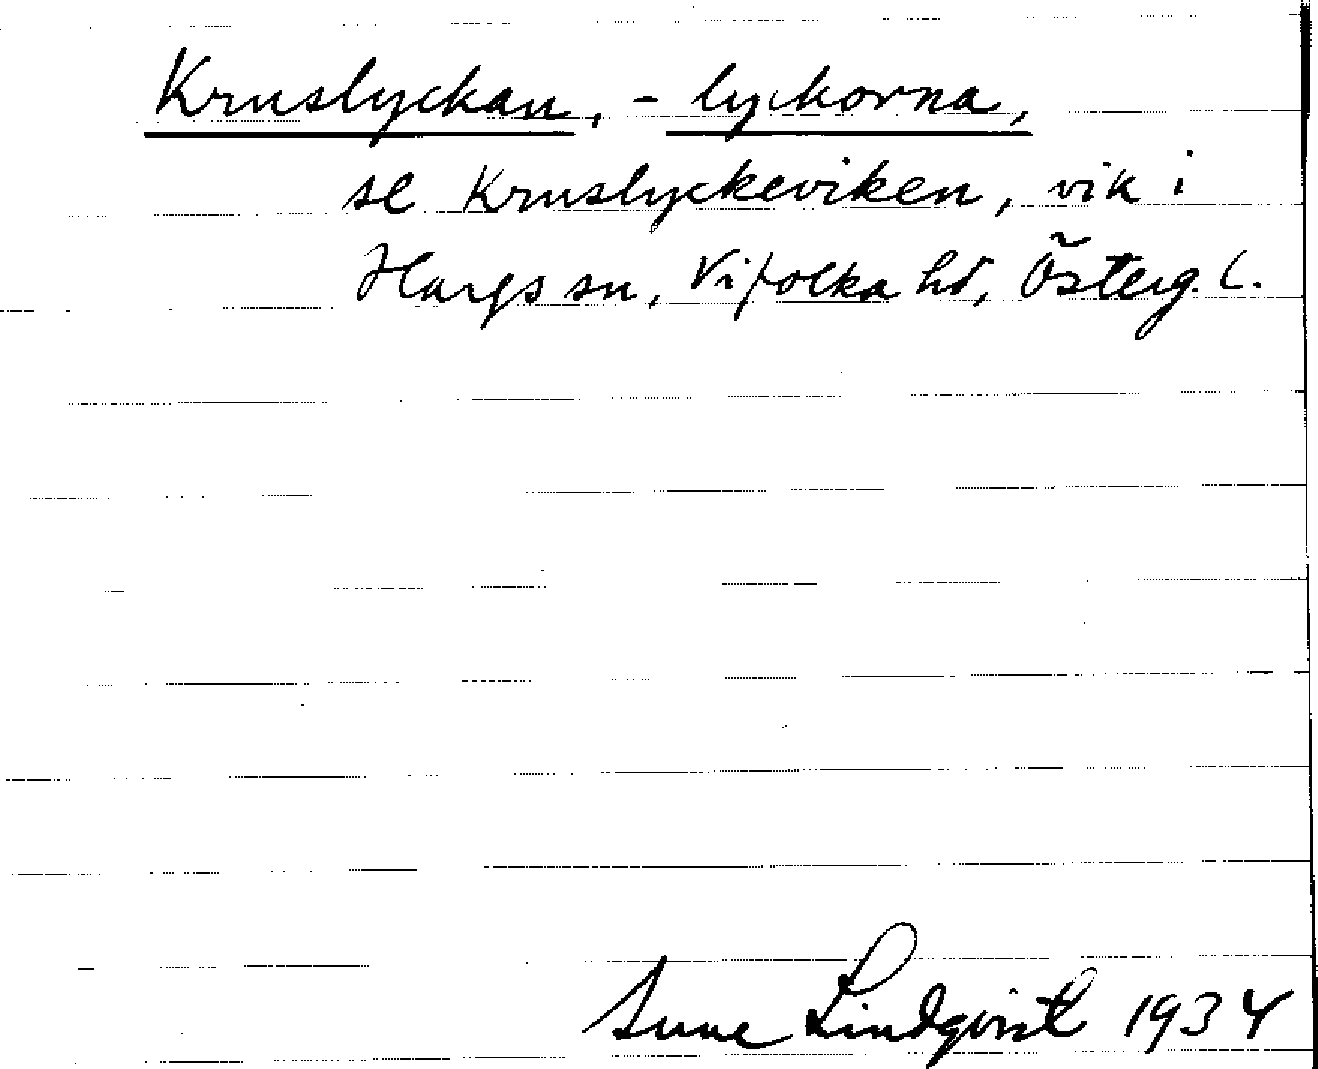 Kruslyckan, - lyckorna,
se Kruslyckeviken, vik i
Hargs sn, Vifolka hd, Österg. L.
Sune Lindqvist 1934